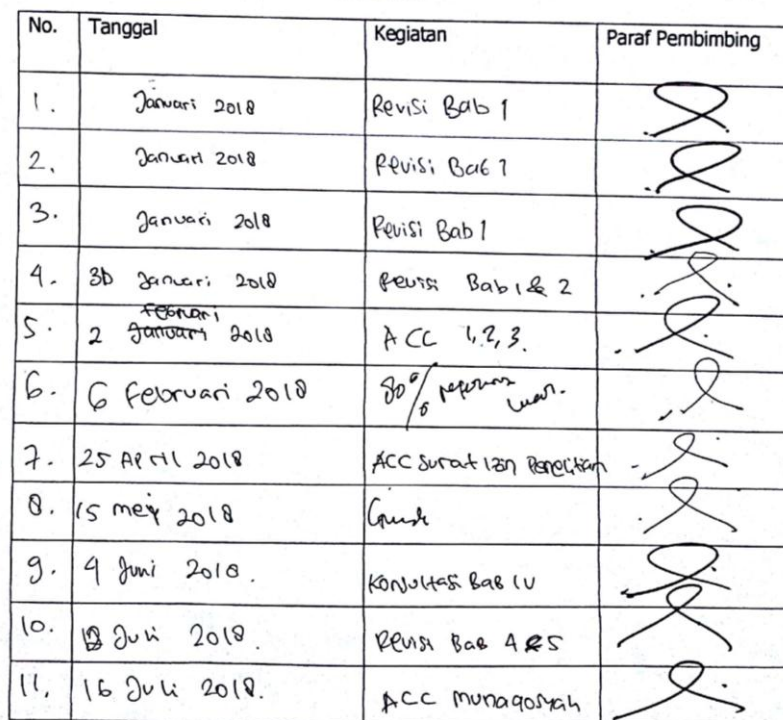 No. Tanggal Kegiatan Paraf Pembimbing
1. Januari 2018 Revisi Bab 1
2. Januari 2018 Revisi Bab 1
3. Januari 2018 Revisi Bab 1
4. 30 Januari 2018 Revisi Bab 1 & 2
Februari
5. 2 Januari 2018 ACC 1,2,3.
6. 6 Februari 2018 80%
7. 25 April 2018 ACC Surat Izin Penelitian
8. 15 mey 2018
9. 4 Juni 2018. Konsultasi Bab IV
10. Juli 2018. Revisi Bab 4 & 5
11. 16 Juli 2018. ACC Munaqosyah